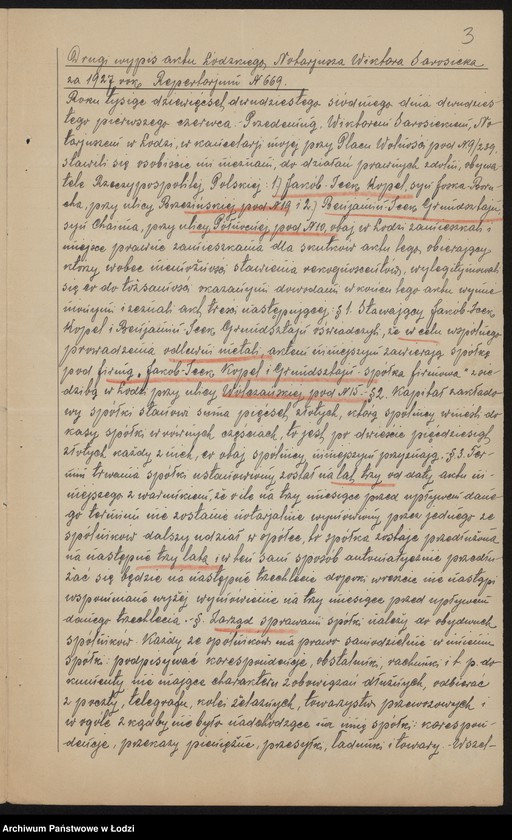 3
Drugi wypis aktu Łódzkiego, Notarjusza Wiktora Sarosieka
za 1927 rok, Repertorjum № 669.
Roku tysiąc dziewięćset dwudziestego siódmego dnia dwudzies-
tego pierwszego czerwca. Przedemną, Wiktorem Sarosiekiem, No-
tarjuszem w Łodzi, w kancelarji mojej przy Placu Wolności pod №9/239,
stawili się osobiście mi nieznani, do działań prawnych zdolni, obywa-
tele Rzeczypospolitej Polskiej: 1) Jakób-Icek Kopel, syn Joska-Boru-
cha, przy ulicy Brzezińskiej pod №19 i 2) Benjamin-Icek Grundsztajn,
syn Chaima, przy ulicy Północnej pod №10, obaj w Łodzi zamieszkali i
miejsce prawnie zamieszkania dla skutków aktu tego, obierający
którzy wobec niemożności stawienia rekognoscentów, wylegitymowali
się co do tożsamości okazanymi dowodami w końcu tego aktu wymie-
nionymi i zeznali akt treści następującej: §1. Stawający Jakób-Icek
Kopel i Benjamin-Icek Grundsztajn oświadczyli, że w celu wspólnego
prowadzenia odlewni metali, aktem niniejszym zawierają spółkę
pod firmą: "Jakób-Icek Kopel i Grundsztajn spółka firmowa" z sie-
dzibą w Łodzi, przy ulicy Wolczańskiej pod №15.- §2. Kapitał zakłado-
wy spółki stanowi suma pięćset złotych, którą spólnicy wnieśli do
kasy spółki w równych częściach, to jest, po dwieście pięćdziesiąt
złotych każdy z nich, co obaj spólnicy niniejszym przyznają. §3. Ter-
min trwania spółki ustanowiony został na lat trzy od daty aktu ni-
niejszego z warunkiem, że o ile na trzy miesiące przed upływem dane-
go terminu nie zostanie notarjalnie wymówiony przez jednego ze
spólników dalszy udział w spółce, to spółka zostaje przedłużona
na następne trzy lata i w ten sam sposób automatycznie przedłu-
żać się będzie na następne trzechlecia dopóki wreszcie nie nastąpi
wspomniane wyżej wymówienie na trzy miesiące przed upływem
danego trzechlecia.- §. Zarząd sprawami spółki należy do obydwuch
spólników. Każdy ze spólników ma prawo samodzielnie w imieniu
spółki: podpisywać korespondencje, obstalunki, rachunki, i t. p. do-
kumenty nie mające charakteru zobowiązań dłużnych, odbierać
z poczty, telegrafu, kolei żelaznych, towarzystw przewozowych i
w ogóle z kądby nie było nadchodzące na imię spółki: korespon-
dencje, przekazy pieniężne, przesyłki, ładunki i towary. Wszel-
Archiwum Państwowe w Łodzi